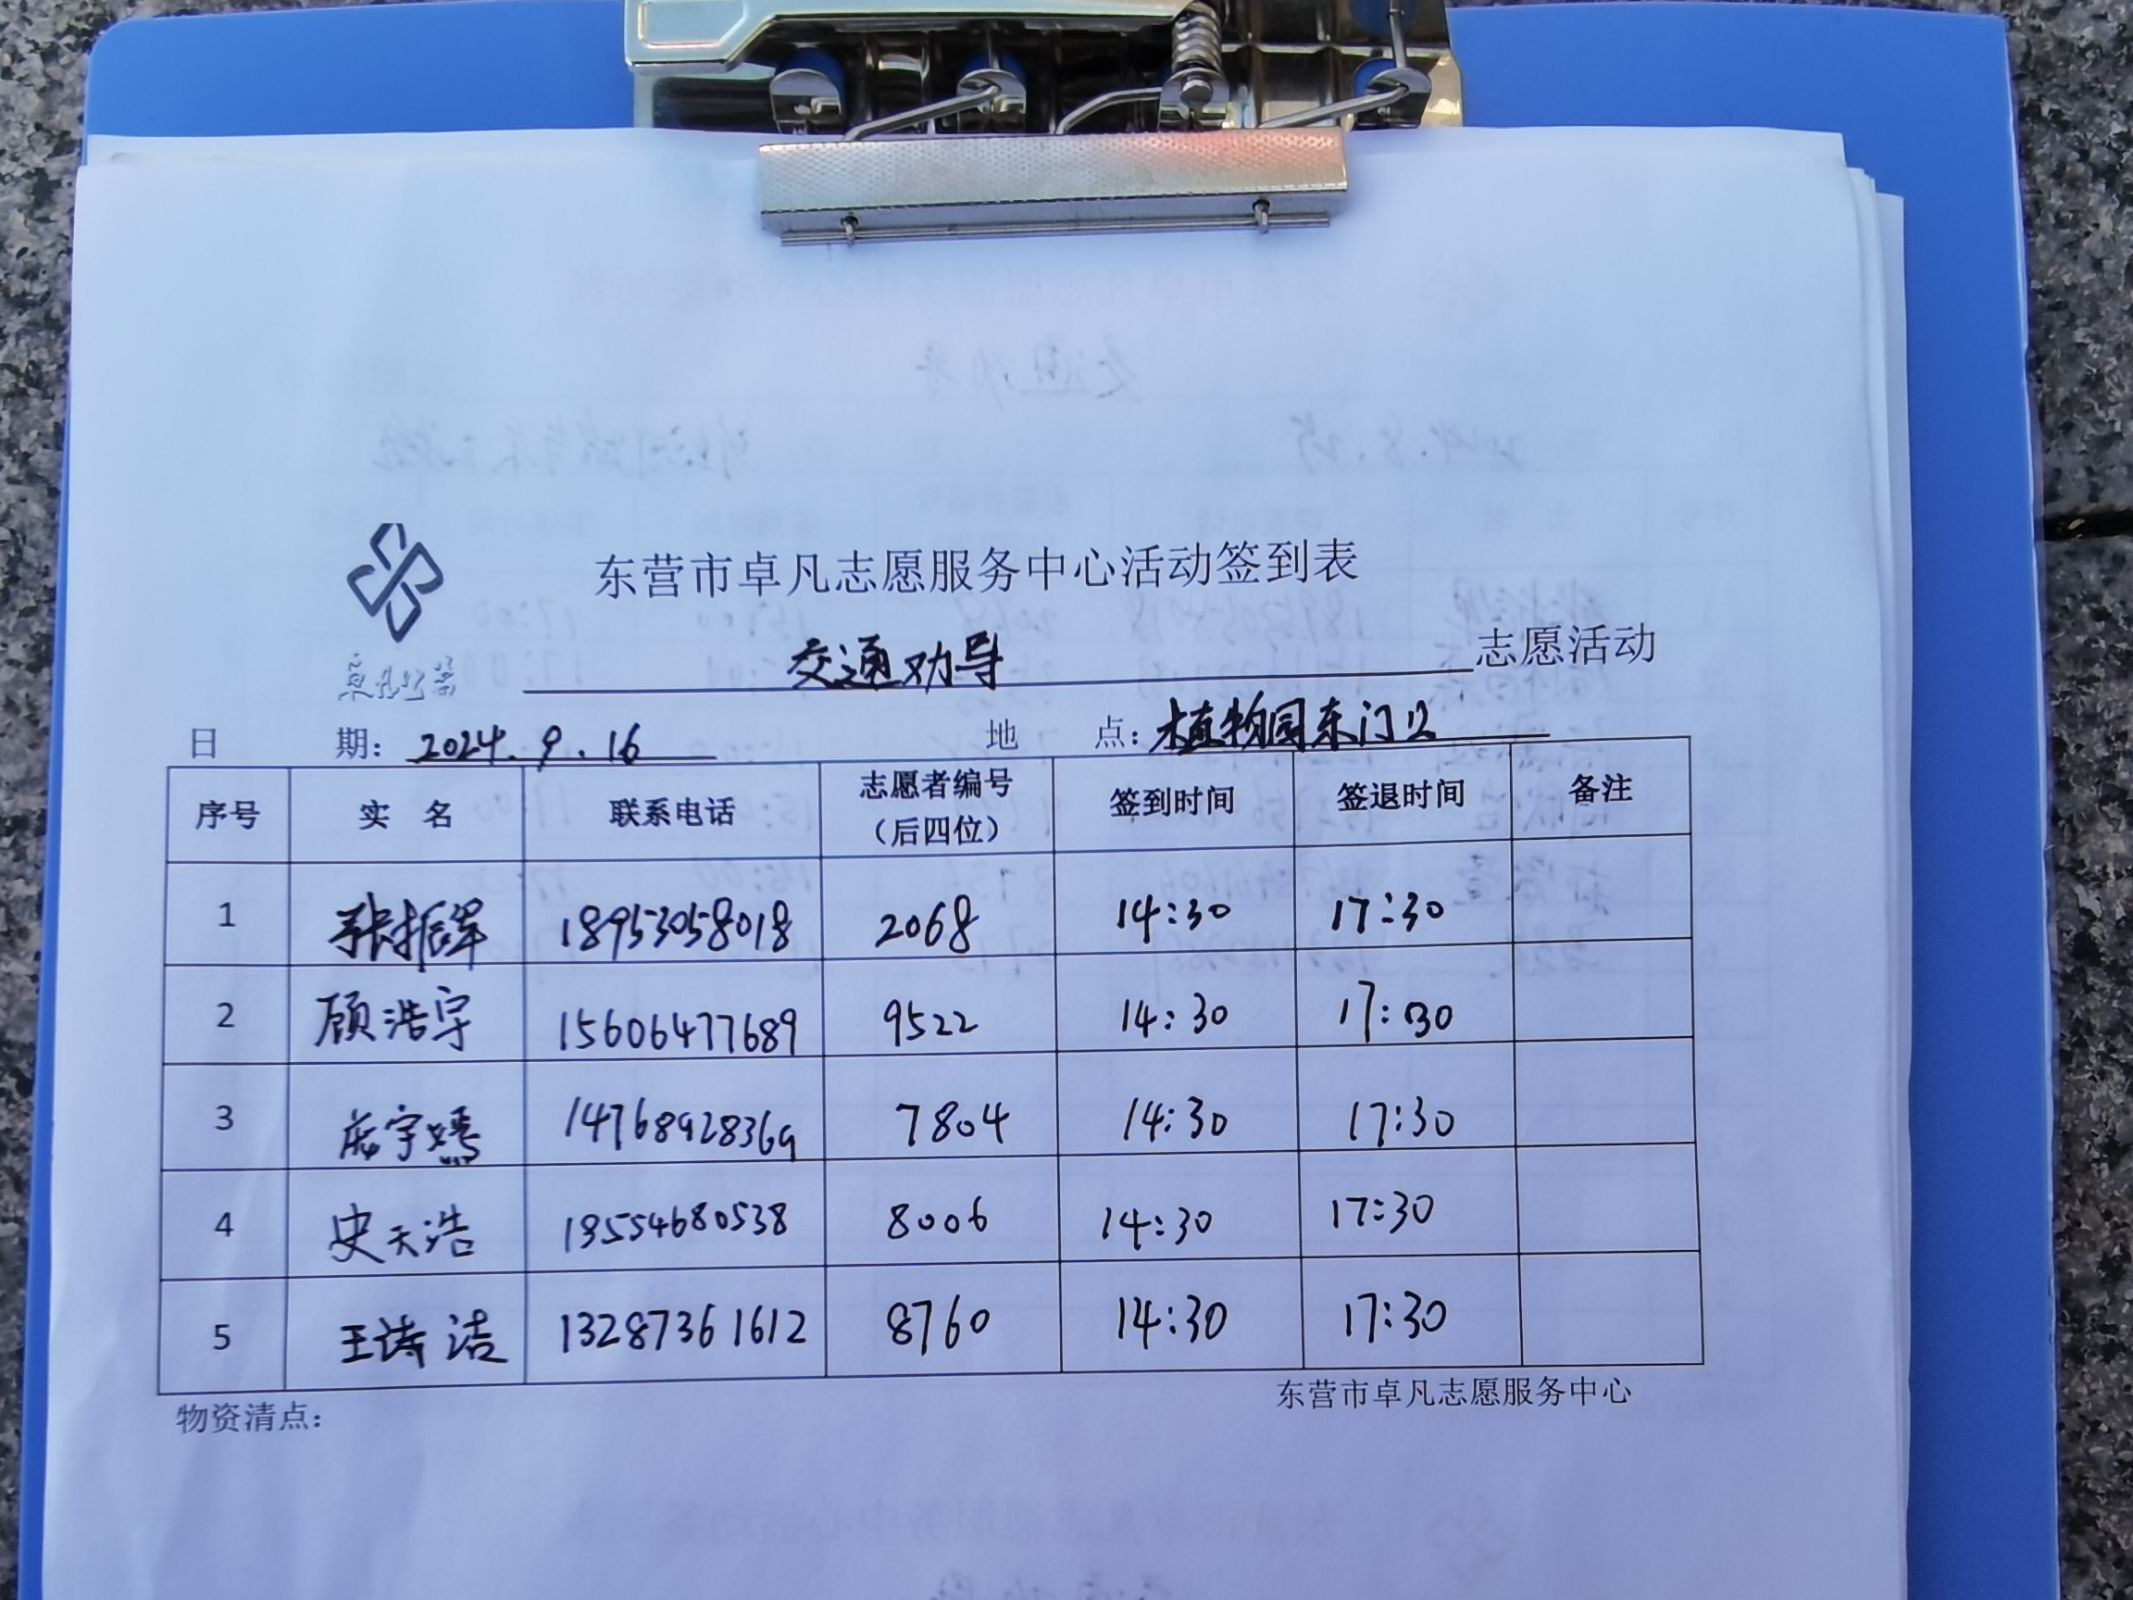 东营市卓凡志愿服务中心活动签到表
交通劝导 志愿活动
日 期：2024.9.16 地 点：植物园东门口
序号 实 名 联系电话 志愿者编号（后四位） 签到时间 签退时间 备注
1 张振军 18953058018 2068 14:30 17:30
2 顾浩宇 15606477689 9522 14:30 17:30
3 宇嫣 14768928369 7804 14:30 17:30
4 史天浩 13554680538 8006 14:30 17:30
5 王诗洁 13287361612 8760 14:30 17:30
东营市卓凡志愿服务中心
物资清点：